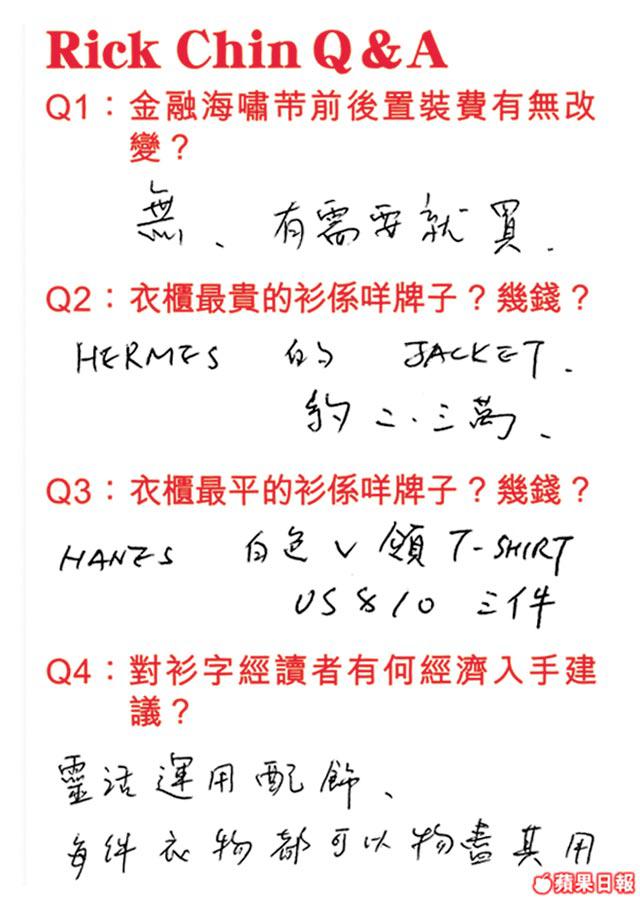 Rick Chin Q & A
Q1：金融海嘯芾前後置裝費有無改
變？
無、有需要就買.
Q2：衣櫃最貴的衫係咩牌子？幾錢？
HERMES 的 JACKET.
約二、三萬、
Q3：衣櫃最平的衫係咩牌子？幾錢？
HANES 白色 V 領 T-SHIRT
US $10 三件
Q4：對衫字經讀者有何經濟入手建
議？
靈活運用配飾、
每件衣物都可以物盡其用
蘋果日報